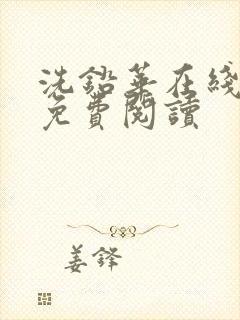 洗鉛華在綫
免費閱讀
姜鋒